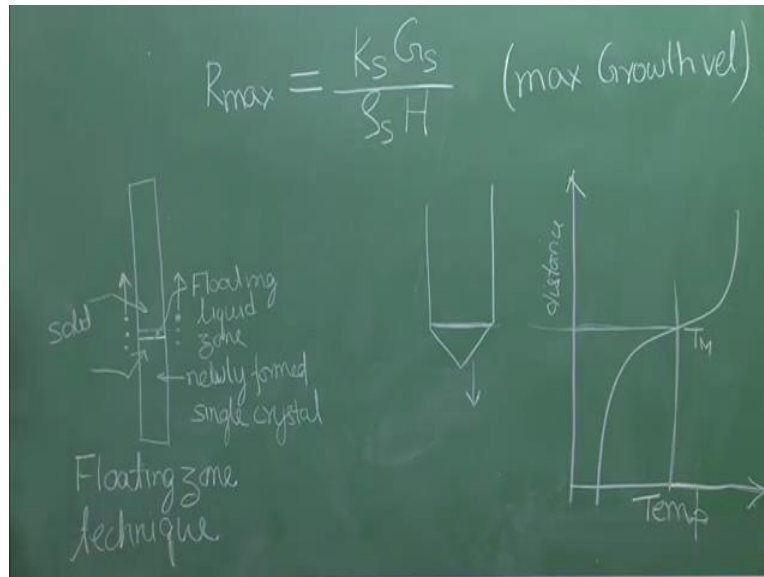 Rmax = KsGs / ρsH (max Growth vel)
solid
Floating
liquid
zone
newly formed
single crystal
Floating zone
technique
distance
TM
Temp